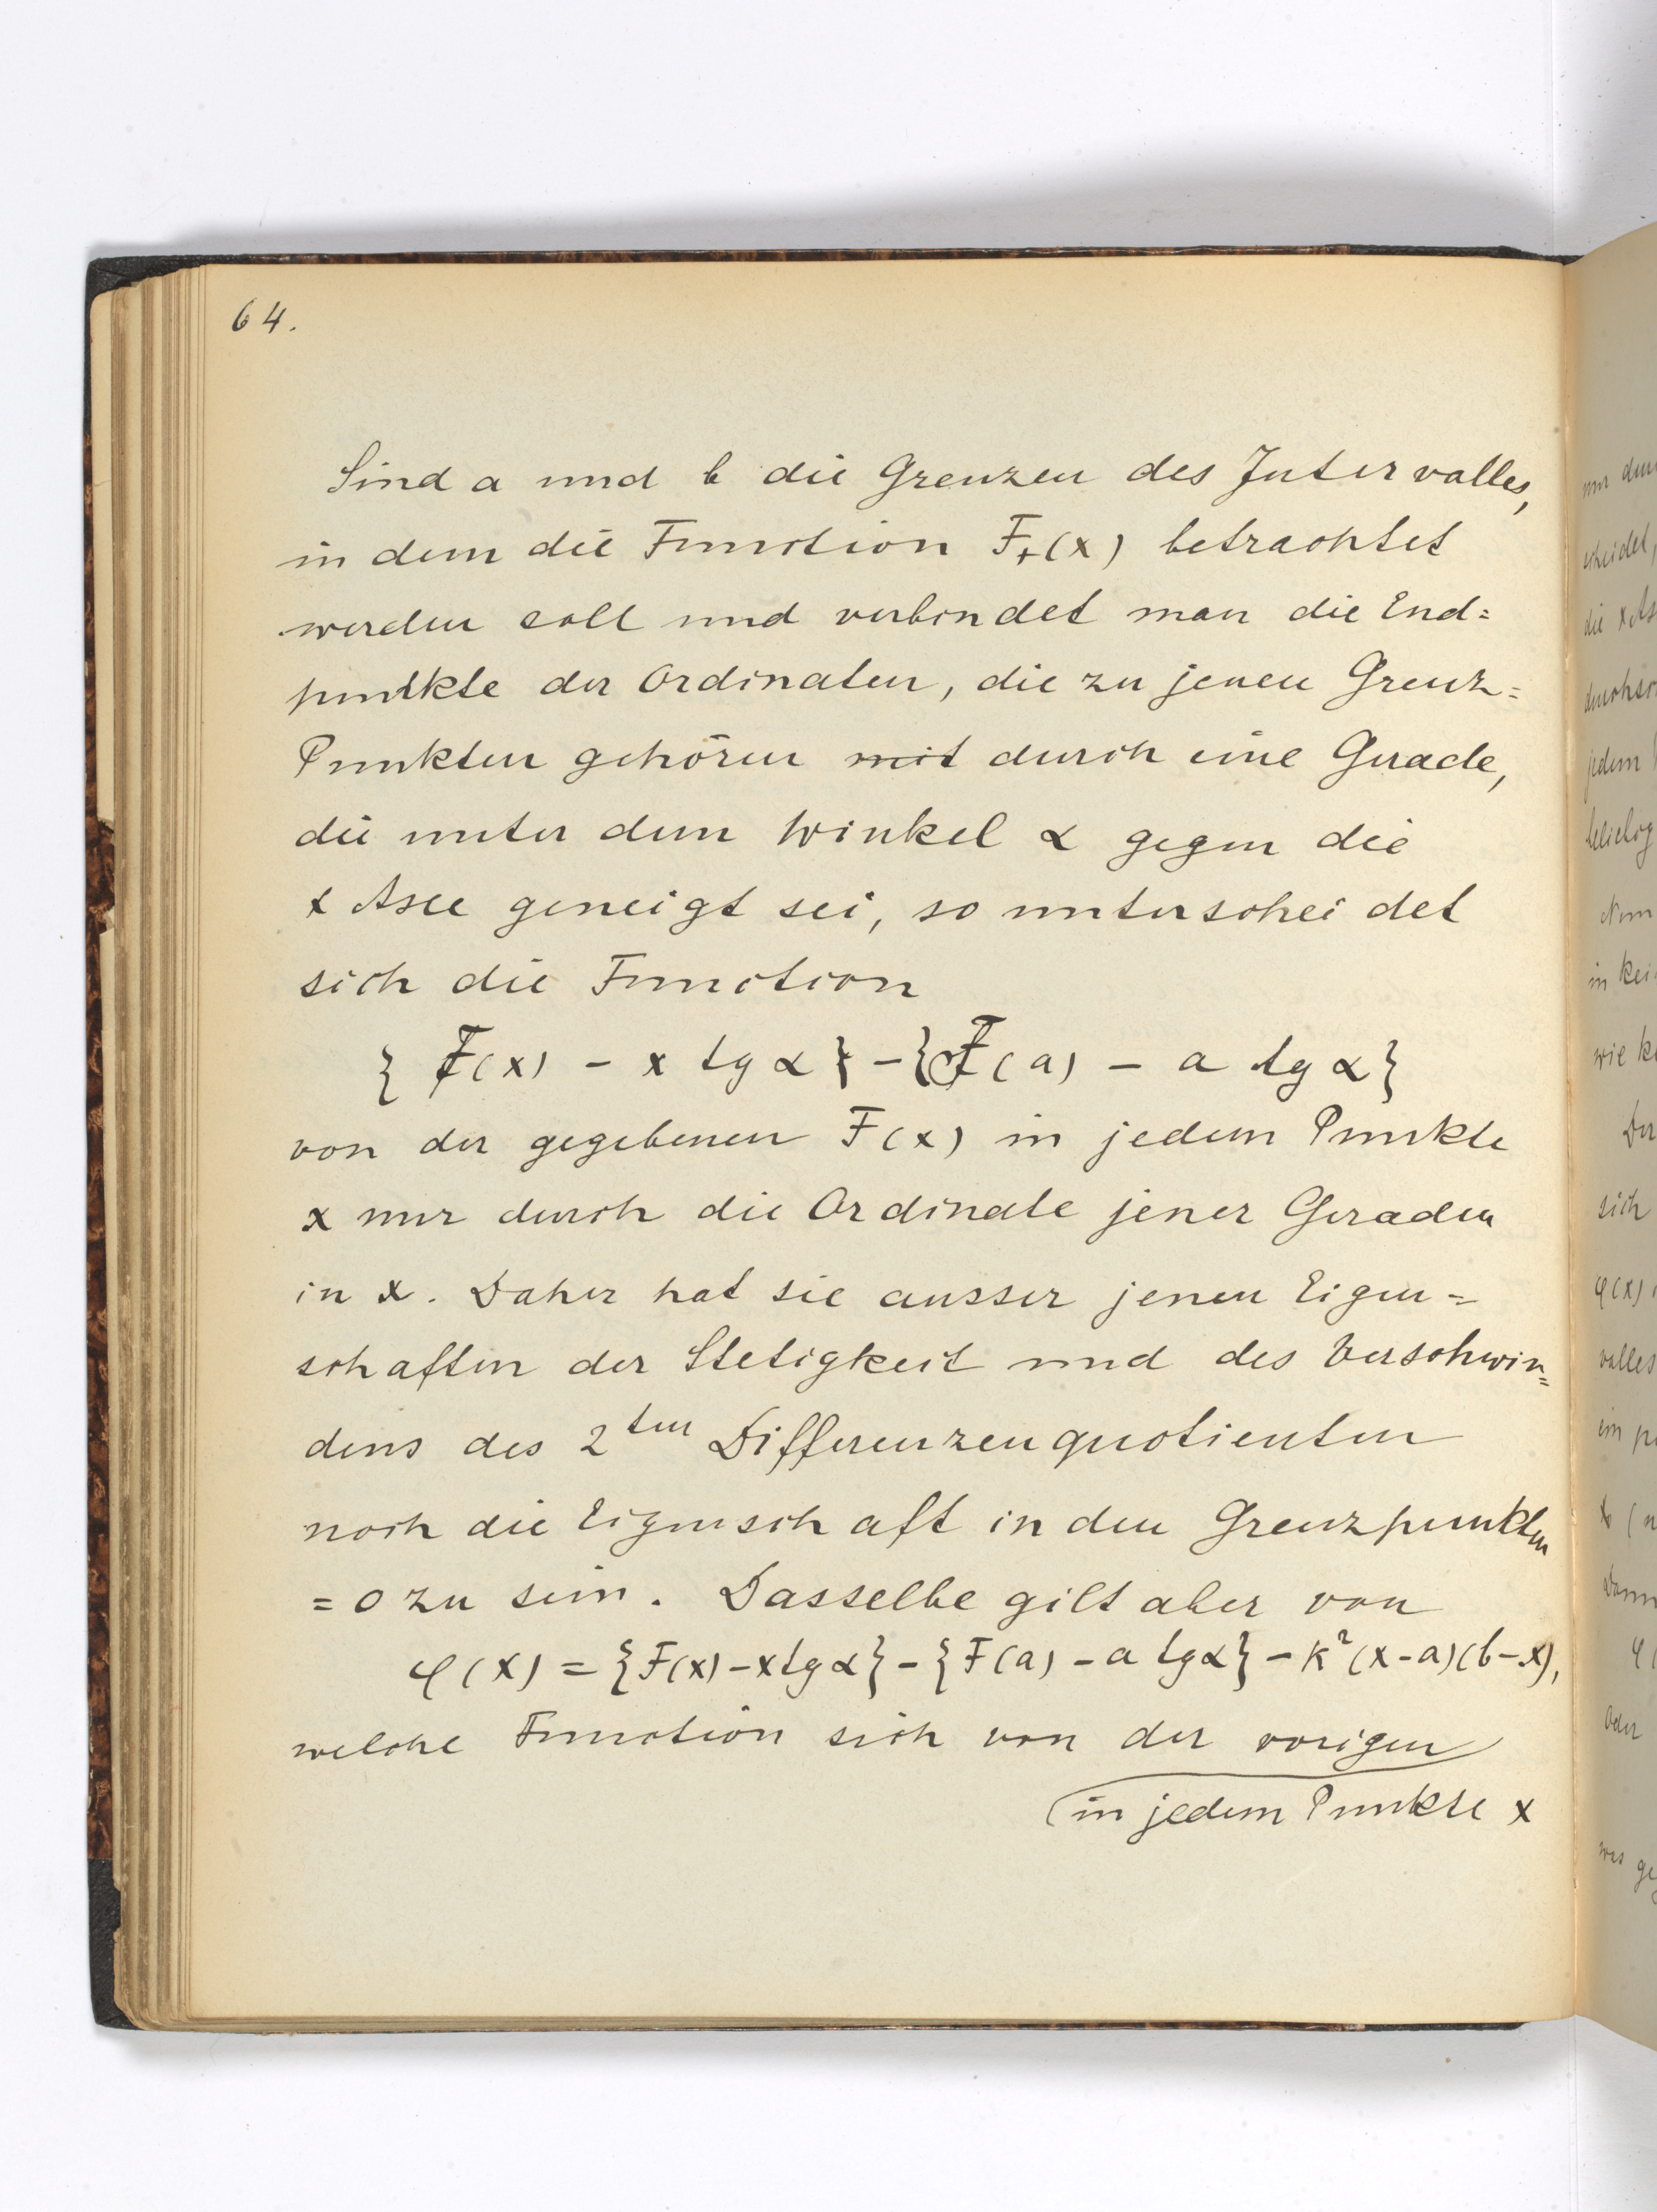 64.
Sind a und b die Grenzen des Intervalles,
in dem die Function F+(x) betrachtet
werden soll und verbindet man die End=
punkte der Ordinaten, die zu jenen Grenz=
Punkten gehören mit durch eine Gerade,
die unter dem Winkel α gegen die
x Axe geneigt sei, so unterscheidet
sich die Function
{ F(x) - x tg α } - { F(a) - a tg α }
von der gegebenen F(x) in jedem Punkte
x nur durch die Ordinate jener Geraden
in x. Daher hat sie ausser jenen Eigen=
schaften der Stetigkeit und des Verschwin=
dens des 2ten Differenzenquotienten
noch die Eigenschaft in den Grenzpunkten
= 0 zu sein. Dasselbe gilt aber von
φ(x) = {F(x) - x tg α} - {F(a) - a tg α} - k²(x-a)(b-x),
welche Function sich von der vorigen
in jedem Punkte x